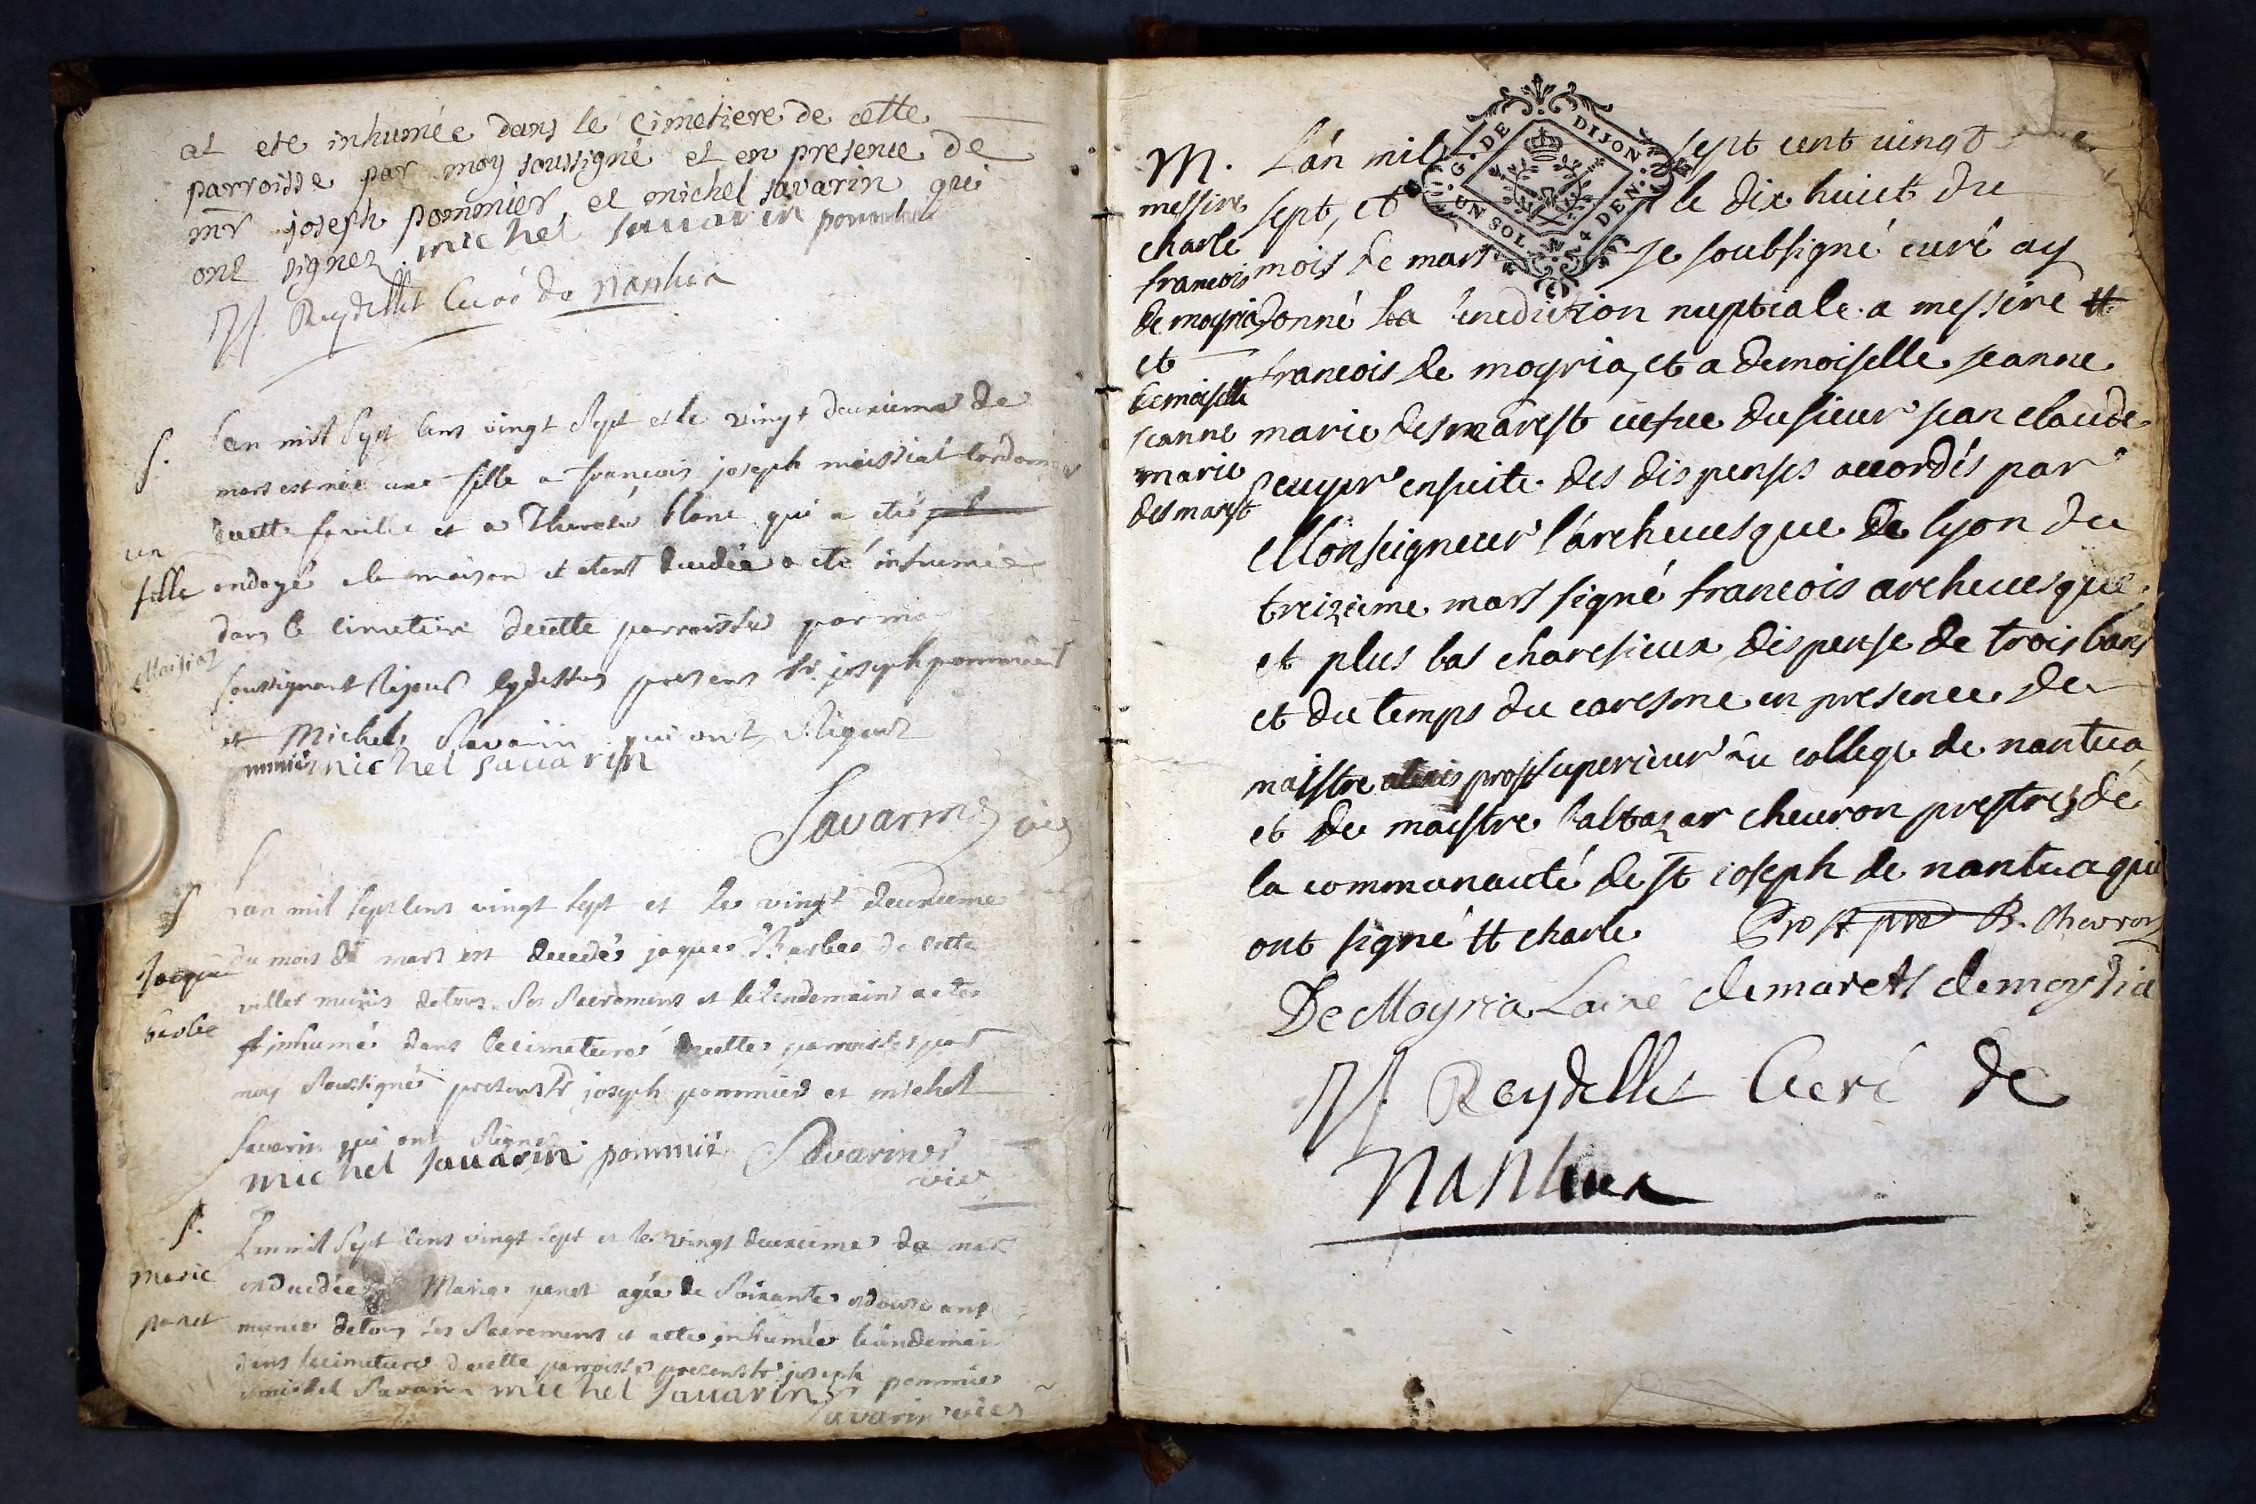 at ete inhumée dans le Cimetiere de cette
parroisse par moy soussigné et en presence de
mr joseph pommier et michel savarin qui
ont signez michel sauarin pommie
Reydellet Curé de Nantua
S.
un
fille
Maissiat
Lan mil Sept Cens vingt Sept et le vingt deuxieme de
mars est née une fille a francois joseph maissiat Cordonnier
decette ville et a Therese blanc qui a eté
ondoyé a la maison et etant decedée a eté inhumée
dans le Cimetiere decette parroisse par moy
soussignant les jour cydessus presens Sr. joseph pommier
et Michel Savarin qui ont signé
michel sauarin
Savarin vic
S
Jaque
berbe
Lan mil Sept Cens vingt Sept et le vingt deuxieme
du mois de mars est decedé jaques Barbe de cette
ville munis detous Ses Sacremens et le lendemain a ete
inhumé dans le cimetiere decette parroisse par
moy Soussigné presens Sr joseph pommier et michel
Savarin qui ont Signé
michel sauarin pommie Savarin
vic
S.
Marie
panet
Lan mil Sept Cens vingt Sept et le vingt deuxieme de mars
est decedée Marie panet agée de Soixante et douze ans
munie detous Ses Sacremens et a ete inhumée le lendemain
dans le cimetiere decette parroisse presens Sr joseph pommier
et michel Savarin michel sauarin
Savarin vic
M.
messire
charle
francois
de moyria
et
demoiselle
jeanne
marie
desmarest
Lán mil sept cent vingt
sept, et le dix huict du
mois de mars je soubsigné curé ay
donné la benediction nuptiale a messire #
francois de moyria, et a demoiselle jeanne
marie desmarest uefue du sieur jean claude
ensuite des dispenses accordés par
Monseigneur l'archeuesque de lyon du
treizieme mars signé francois archeuesque
et plus bas dispense de trois bans
et du temps du caresme en presence de
maistre alexis prost superieur du college de nantua
et de maistre baltazar cheuron prestres de
la communauté de st ioseph de nantua qui
ont signé # charle Prost pre B. Chevron
De Moyria Lainé demarest demoyria
Reydellet Curé de
Nantua
G. DE DIJON
UN SOL 4 DEN.